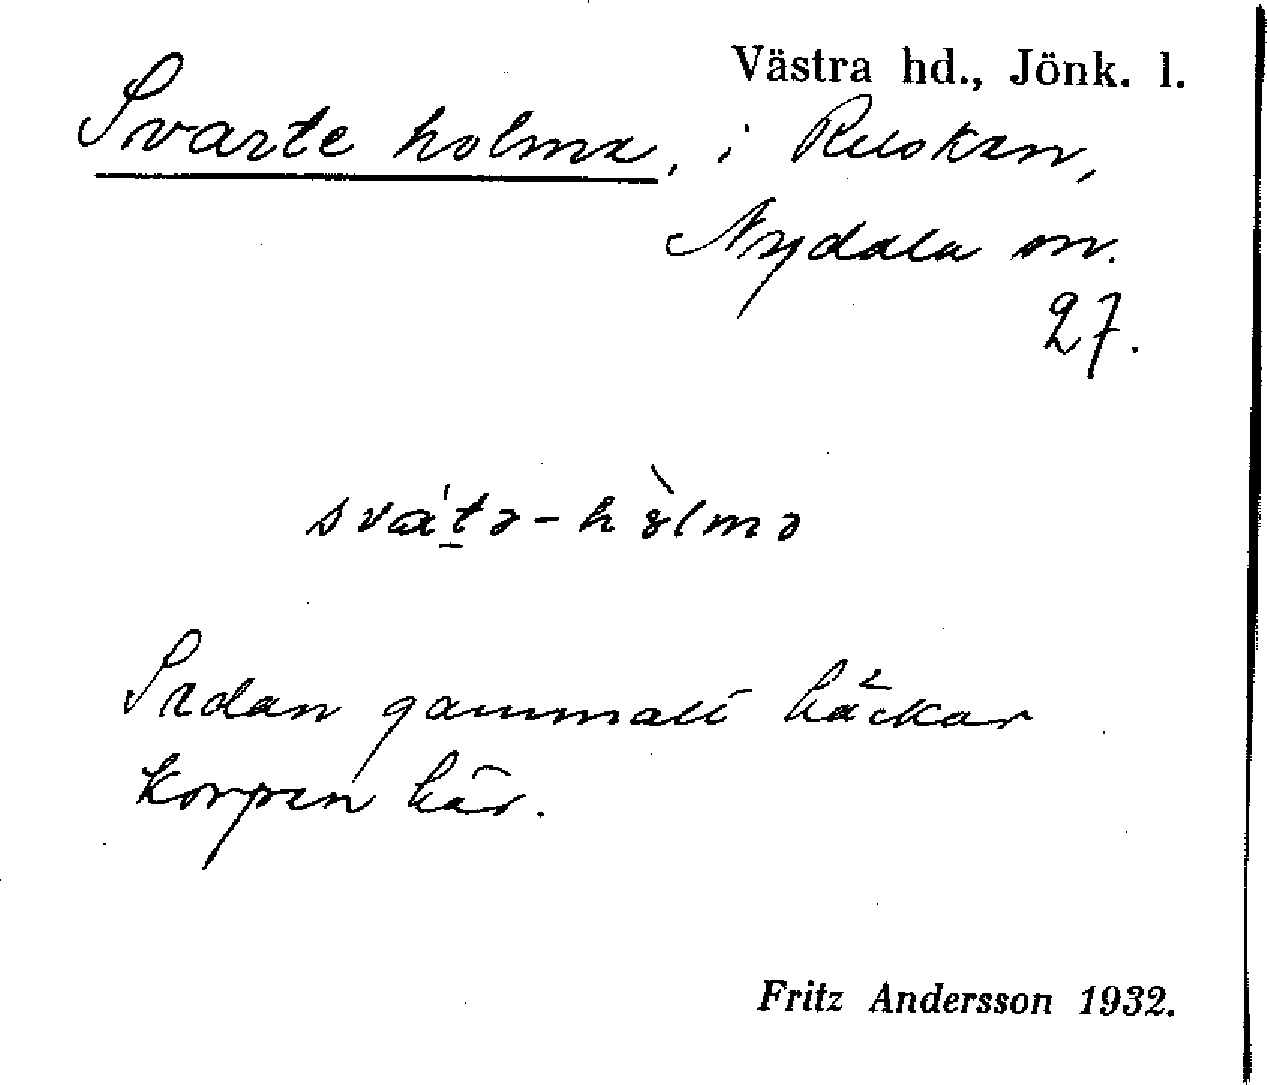 Västra hd., Jönk. l.
Svarte holme, i Rusken,
Nydala sn.
27.
svátə-hòlmə
Sedan gammalt häckar
korpen här.
Fritz Andersson 1932.